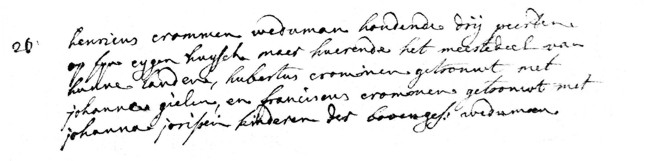 26 henricus crommen weduman houdende drij peerden
op syn eygen huysche maer huerende het meestedeel van
hunne landen, hubertus crommen getrouwt met
johanna gielen, en franciscus crommen getrouwt met
johanna jorissen kinderen des bovenges: weduman